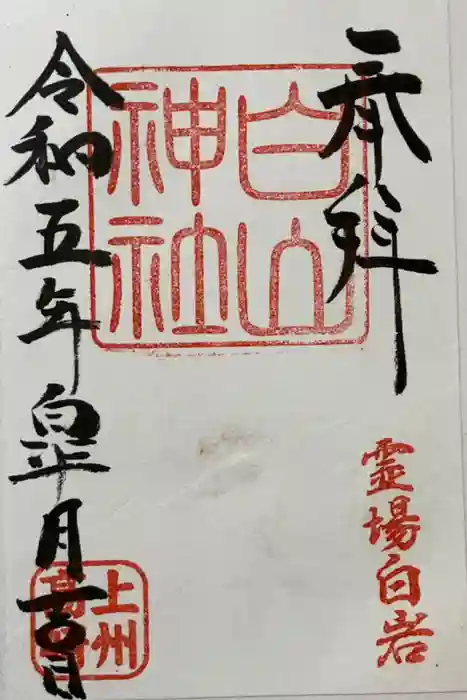 奉拝
霊場白岩
白山
神社
令和五年皐月
日
上州
高崎